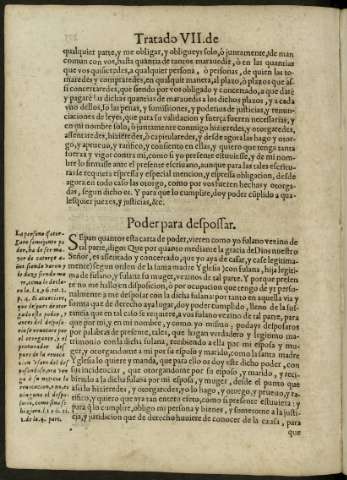 Tratado VII. de
qualquier parte, y me obligar, y obligueys solo, ò juntamente, de man
comun con vos, hasta quantia de tantos marauedis, ò en las quantias
que vos quisieredes, a qualquier persona, ò personas, de quien las to-
maredes y compraredes, en qualquier manera, al plazo, ò plazos que as-
si concertaredes, que siendo por vos obligado y concertado, a que daré
y pagaré las dichas quantias de marauedis a los dichos plazos, y a cada
vno dellos, so las penas, y sumissiones, y poderios de justicias, y renun-
ciaciones de leyes, que para su validacion y fuerça fueren necessarias, y
en mi nombre solo, ò juntamente con migo hizieredes, y otorgaredes,
assentaredes, hizieredes, ò capitularedes, y desde agora las hago y otor-
go, y aprueuo, y ratifico, y consiento en ellas, y quiero que tenga tanta
fuerça y vigor contra mi, como si yo presente estuuiesse, y de mi nom-
bre lo firmasse ante el presente escriuano, aunque para las tales escritu-
ras se requiera espressa y especial mencion, y espressa obligacion, desde
agora en todo caso las otorgo, como por vos fueren hechas y otorga-
das, segun dicho es. Y para que lo cumplire, doy poder cũplido a qua-
lesquier juezes, y justicias, &c.
Poder para desposar.
SEpan quantos esta carta de poder, vieren como yo fulano vezino de
tal parte, digo: Que por quanto mediante la gracia de Dios nuestro
Señor, es assentado y concertado, que yo aya de casar, y case legitima-
mente, segun orden de la santa madre Yglesia con fulana, hija legiti-
ma de fulano, y fulana su muger, vezinos de tal parte. Y porque presen
te no me hallo en disposicion, ò por ocupacion que tengo de yr perso-
nalmente a me desposar con la dicha fulana: por tanto en aquella via y
forma que de derecho aya lugar, doy poder cumplido, lleno de la sus-
tancia que en tal caso se requiere, a vos fulano vezino de tal parte, para
que por mi, y en mi nombre, y como yo mismo, podays desposaros
por palabras de presente, tales, que hagan verdadero y legitimo ma-
trimonio con la dicha fulana, recibiendo a ella por mi esposa y mu-
ger, y otorgandome a mi por su esposo y marido, como la santa madre
Yglesia lo quiere y manda, que para ello os doy este dicho poder, con
sus incidencias, que otorgandome por su esposo, y marido, y reci-
biendo a la dicha fulana por mi esposa, y muger, desde el punto que
assi lo hizieredes, y otorgaredes, yo lo hago, y otorgo, y prueuo, y ra-
tifico, y quiero que aya tan entero efeto, como si presente estuuiera: y
para q̃ lo cumplire, obligo mi persona y bienes, y someteme a la justi-
cia, y jurisdicion que de derecho huuiere de conocer de la causa, para
que